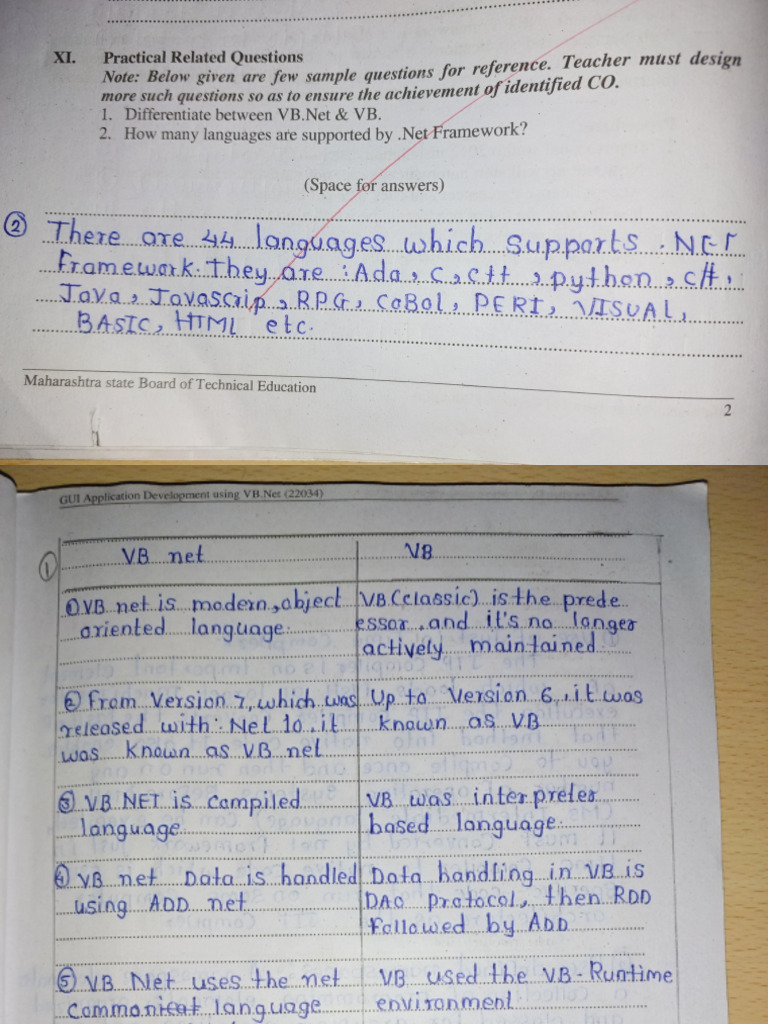 XI. Practical Related Questions
Note: Below given are few sample questions for reference. Teacher must design
more such questions so as to ensure the achievement of identified CO.
1. Differentiate between VB.Net & VB.
2. How many languages are supported by .Net Framework?
(Space for answers)
② There are 44 languages which supports .NET
Framework. They are : Ada, C, C++, python, C#,
Java, Javascrip, RPG, CoBol, PERI, VISUAL,
BASIC, HTML etc.
Maharashtra state Board of Technical Education
2
GUI Application Development using VB.Net (22034)
① VB net | VB
① VB net is modern, object | VB (classic) is the prede
oriented language. | essor. and it's no longer
actively maintained.
② From Version 7, which was | Up to Version 6, it was
released with .Net 10. it | known as VB
was known as VB net
③ VB NET is Compiled | VB was interpreter
language | based language.
④ VB net Data is handled | Data handling in VB is
using ADD net | DAO Protocol, then RDD
followed by ADD
⑤ VB Net uses the net | VB used the VB-Runtime
Commonicat language | environment